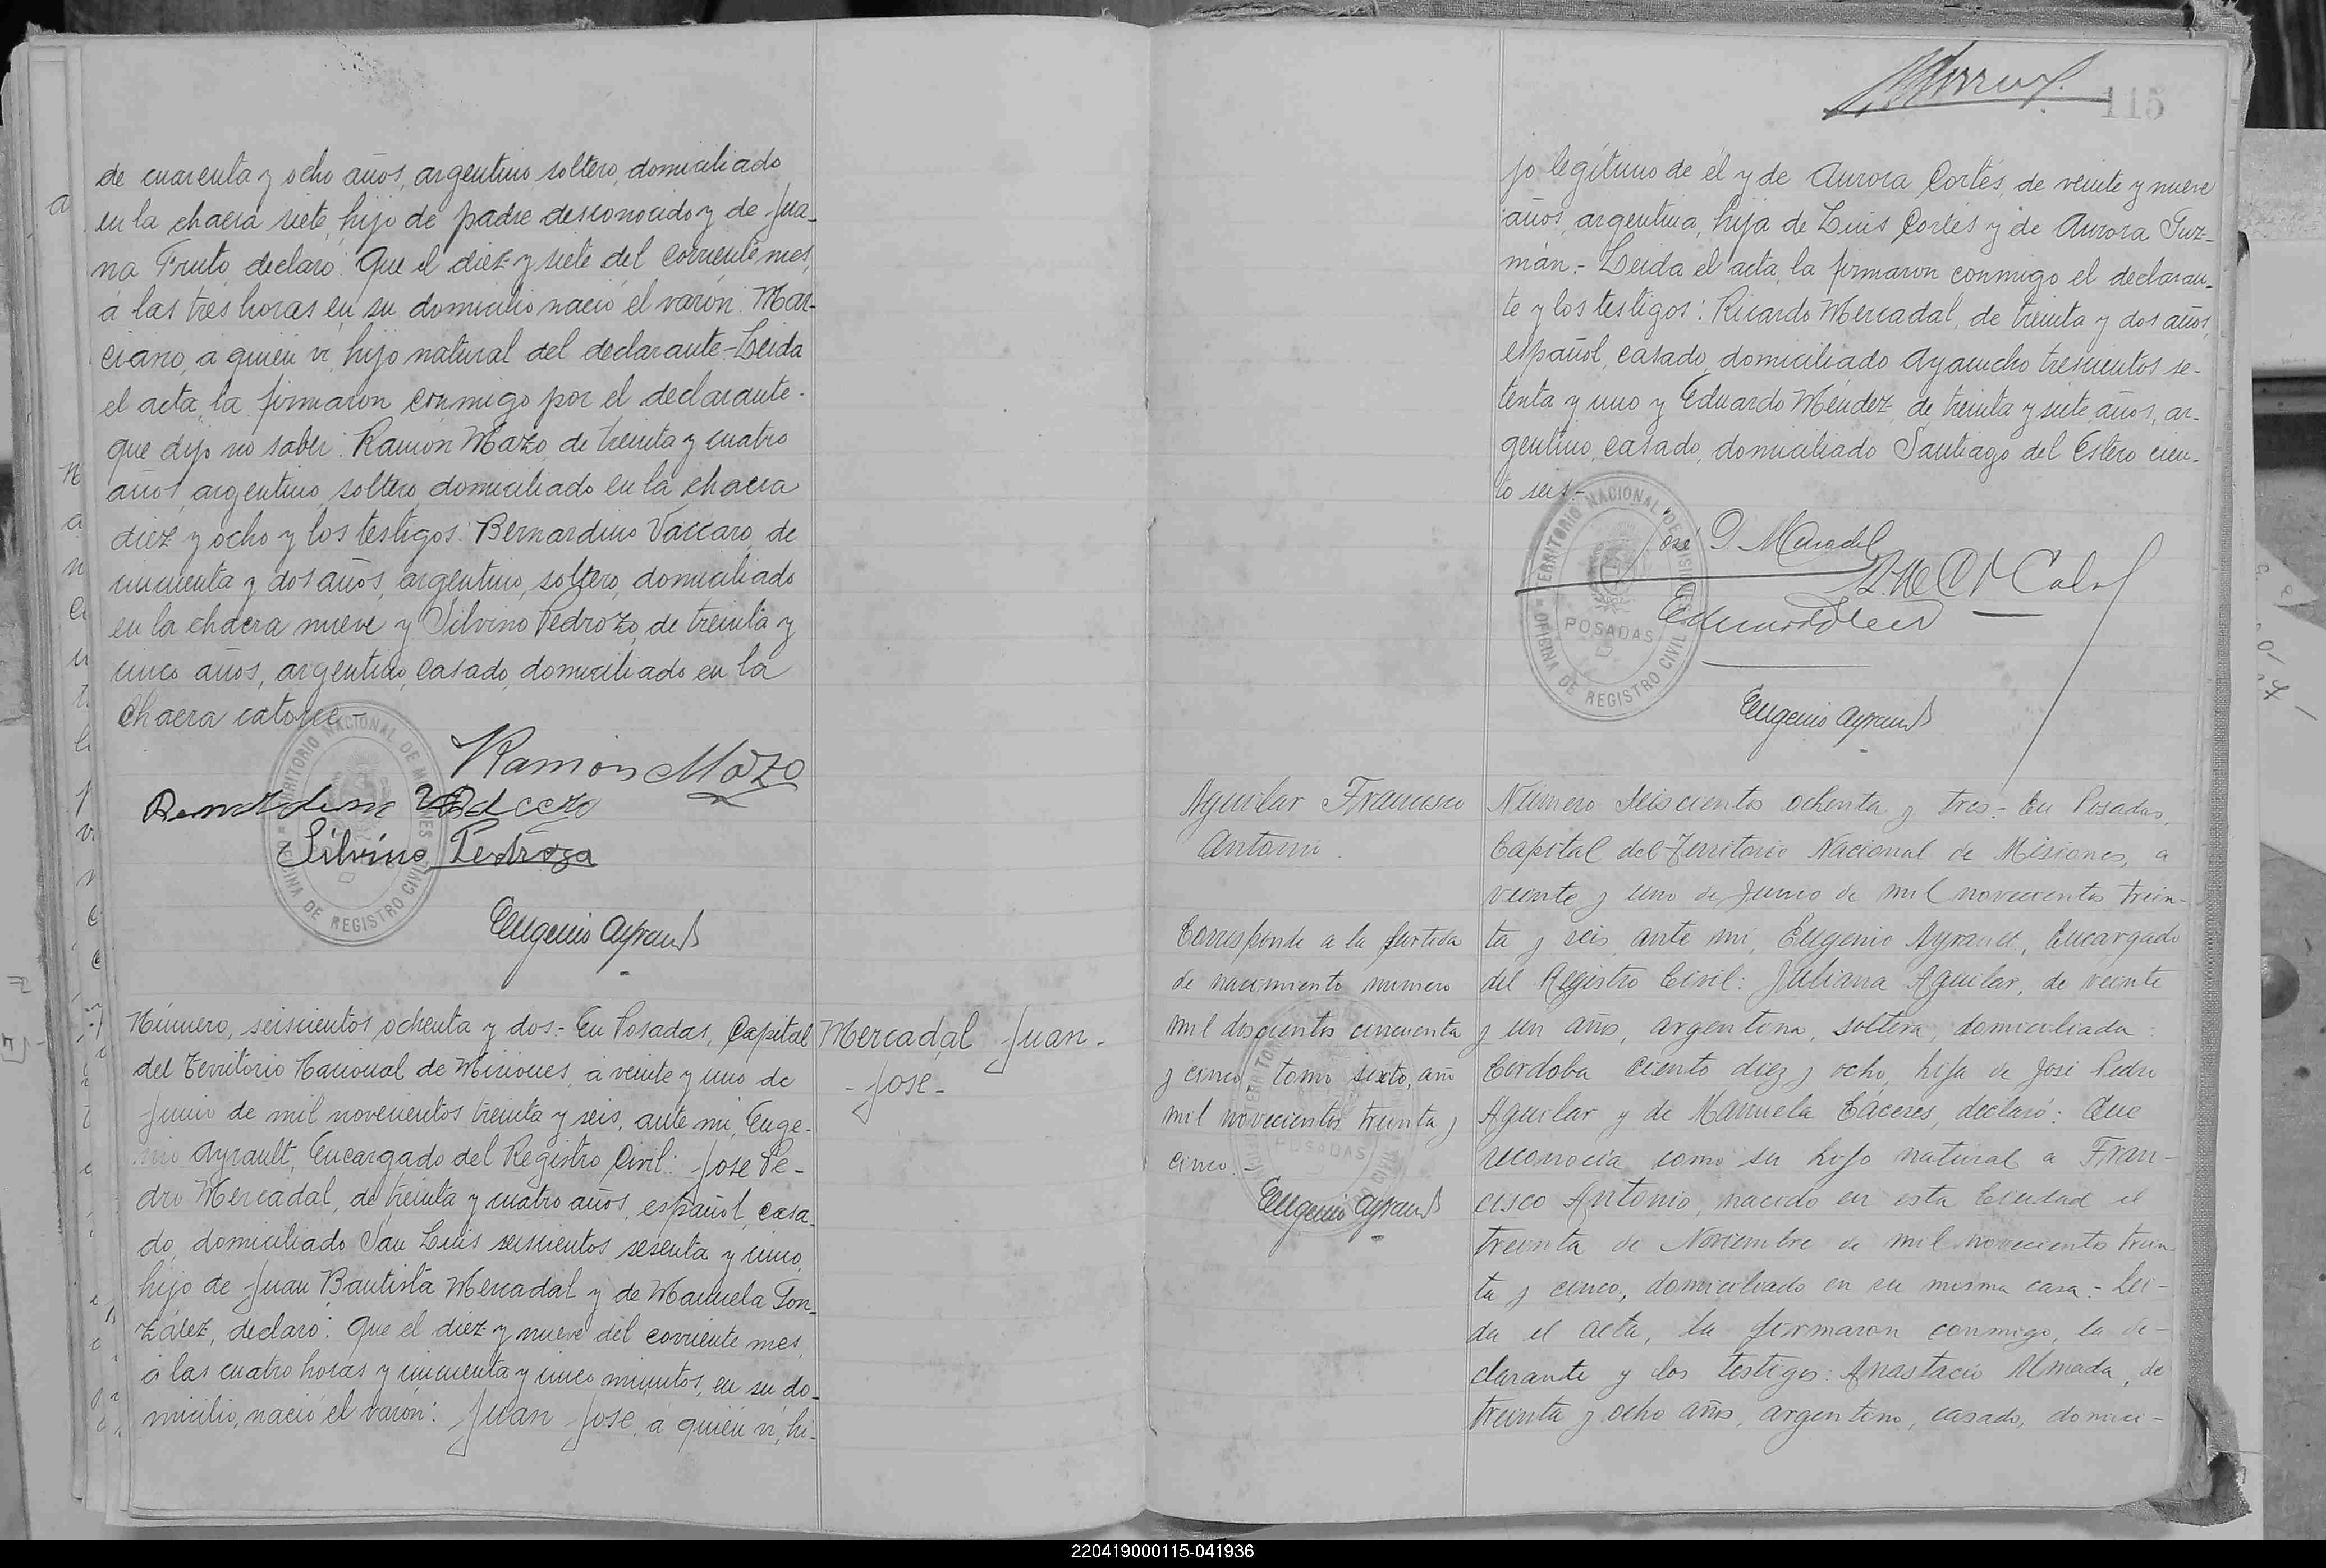 de cuarenta y ocho años, argentino soltero, domiciliado
en la chacra siete, hijo de padre desconocido y de Jua-
na Fruto, declaró: Que el diez y siete del corriente mes,
a las tres horas en su domicilio nació el varón: Mar-
ciano, a quien vi, hijo natural del declarante.- Leida
el acta, la firmaron conmigo por el declarante
que dijo no saber: Ramón Mazo, de treinta y cuatro
años, argentino, soltero, domiciliado en la chacra
diez y ocho y los testigos: Bernardino Vaccaro, de
cincuenta y dos años, argentino, soltero, domiciliado
en la chacra nueve y Silvino Pedrozo, de treinta y
cinco años, argentino, casado, domiciliado en la
Chacra catorce.-
Ramon Mazo
Silvino Pedroza
Eugenio Ayrault
TERRITORIO NACIONAL DE MISIONES
OFICINA DE REGISTRO CIVIL
Número, seiscientos ochenta y dos.- En Posadas, Capital
del Territorio Nacional de Misiones, a veinte y uno de
Junio de mil novecientos treinta y seis, ante mi, Euge-
nio Ayrault, Encargado del Registro Civil: Jose Pe-
dro Mercadal, de treinta y cuatro años, español, casa-
do, domiciliado San Luis seiscientos sesenta y cinco,
hijo de Juan Bautista Mercadal y de Manuela Gon-
zález, declaró: Que el diez y nueve del corriente mes,
a las cuatro horas y cincuenta y cinco minutos, en su do-
micilio, nació el varón: Juan Jose, a quien vi, hi-
Mercadal Juan-
-Jose-
115
jo legítimo de él y de Aurora Cortés, de veinte y nueve
años, argentina, hija de Luis Cortés y de Aurora Guz-
mán.- Leida el acta, la firmaron conmigo el declaran-
te y los testigos: Ricardo Mercadal, de treinta y dos años,
español, casado, domiciliado Ayacucho trescientos se-
tenta y uno y Eduardo Méndez, de treinta y siete años, ar-
gentino, casado, domiciliado Santiago del Estero cien-
to seis.-
José P. Mercadal
Eugenio Ayrault
TERRITORIO NACIONAL DE MISIONES
POSADAS
OFICINA DE REGISTRO CIVIL
Aguilar Francisco
Antonio.
Corresponde a la partida
de nacimiento numero
mil doscientos cincuenta
y cinco, tomo sexto, año
mil novecientos treinta y
cinco.-
Eugenio Ayrault
POSADAS
Número seiscientos ochenta y tres.- En Posadas,
Capital del Territorio Nacional de Misiones, a
veinte y uno de Junio de mil novecientos trein-
ta y seis, ante mi, Eugenio Ayrault, Encargado
del Registro Civil: Juliana Aguilar, de veinte
y un años, argentina, soltera, domiciliada:
Cordoba ciento diez y ocho, hija de José Pedro
Aguilar y de Manuela Cáceres, declaró: Que
reconocía como su hijo natural a Fran-
cisco Antonio, nacido en esta Ciudad el
treinta de Noviembre de mil novecientos trein-
ta y cinco, domiciliado en su misma casa.- Lei-
da el acta, la firmaron conmigo, la de-
clarante y los testigos: Anastacio Almada, de
treinta y ocho años, argentino, casado, domici-
220419000115-041936